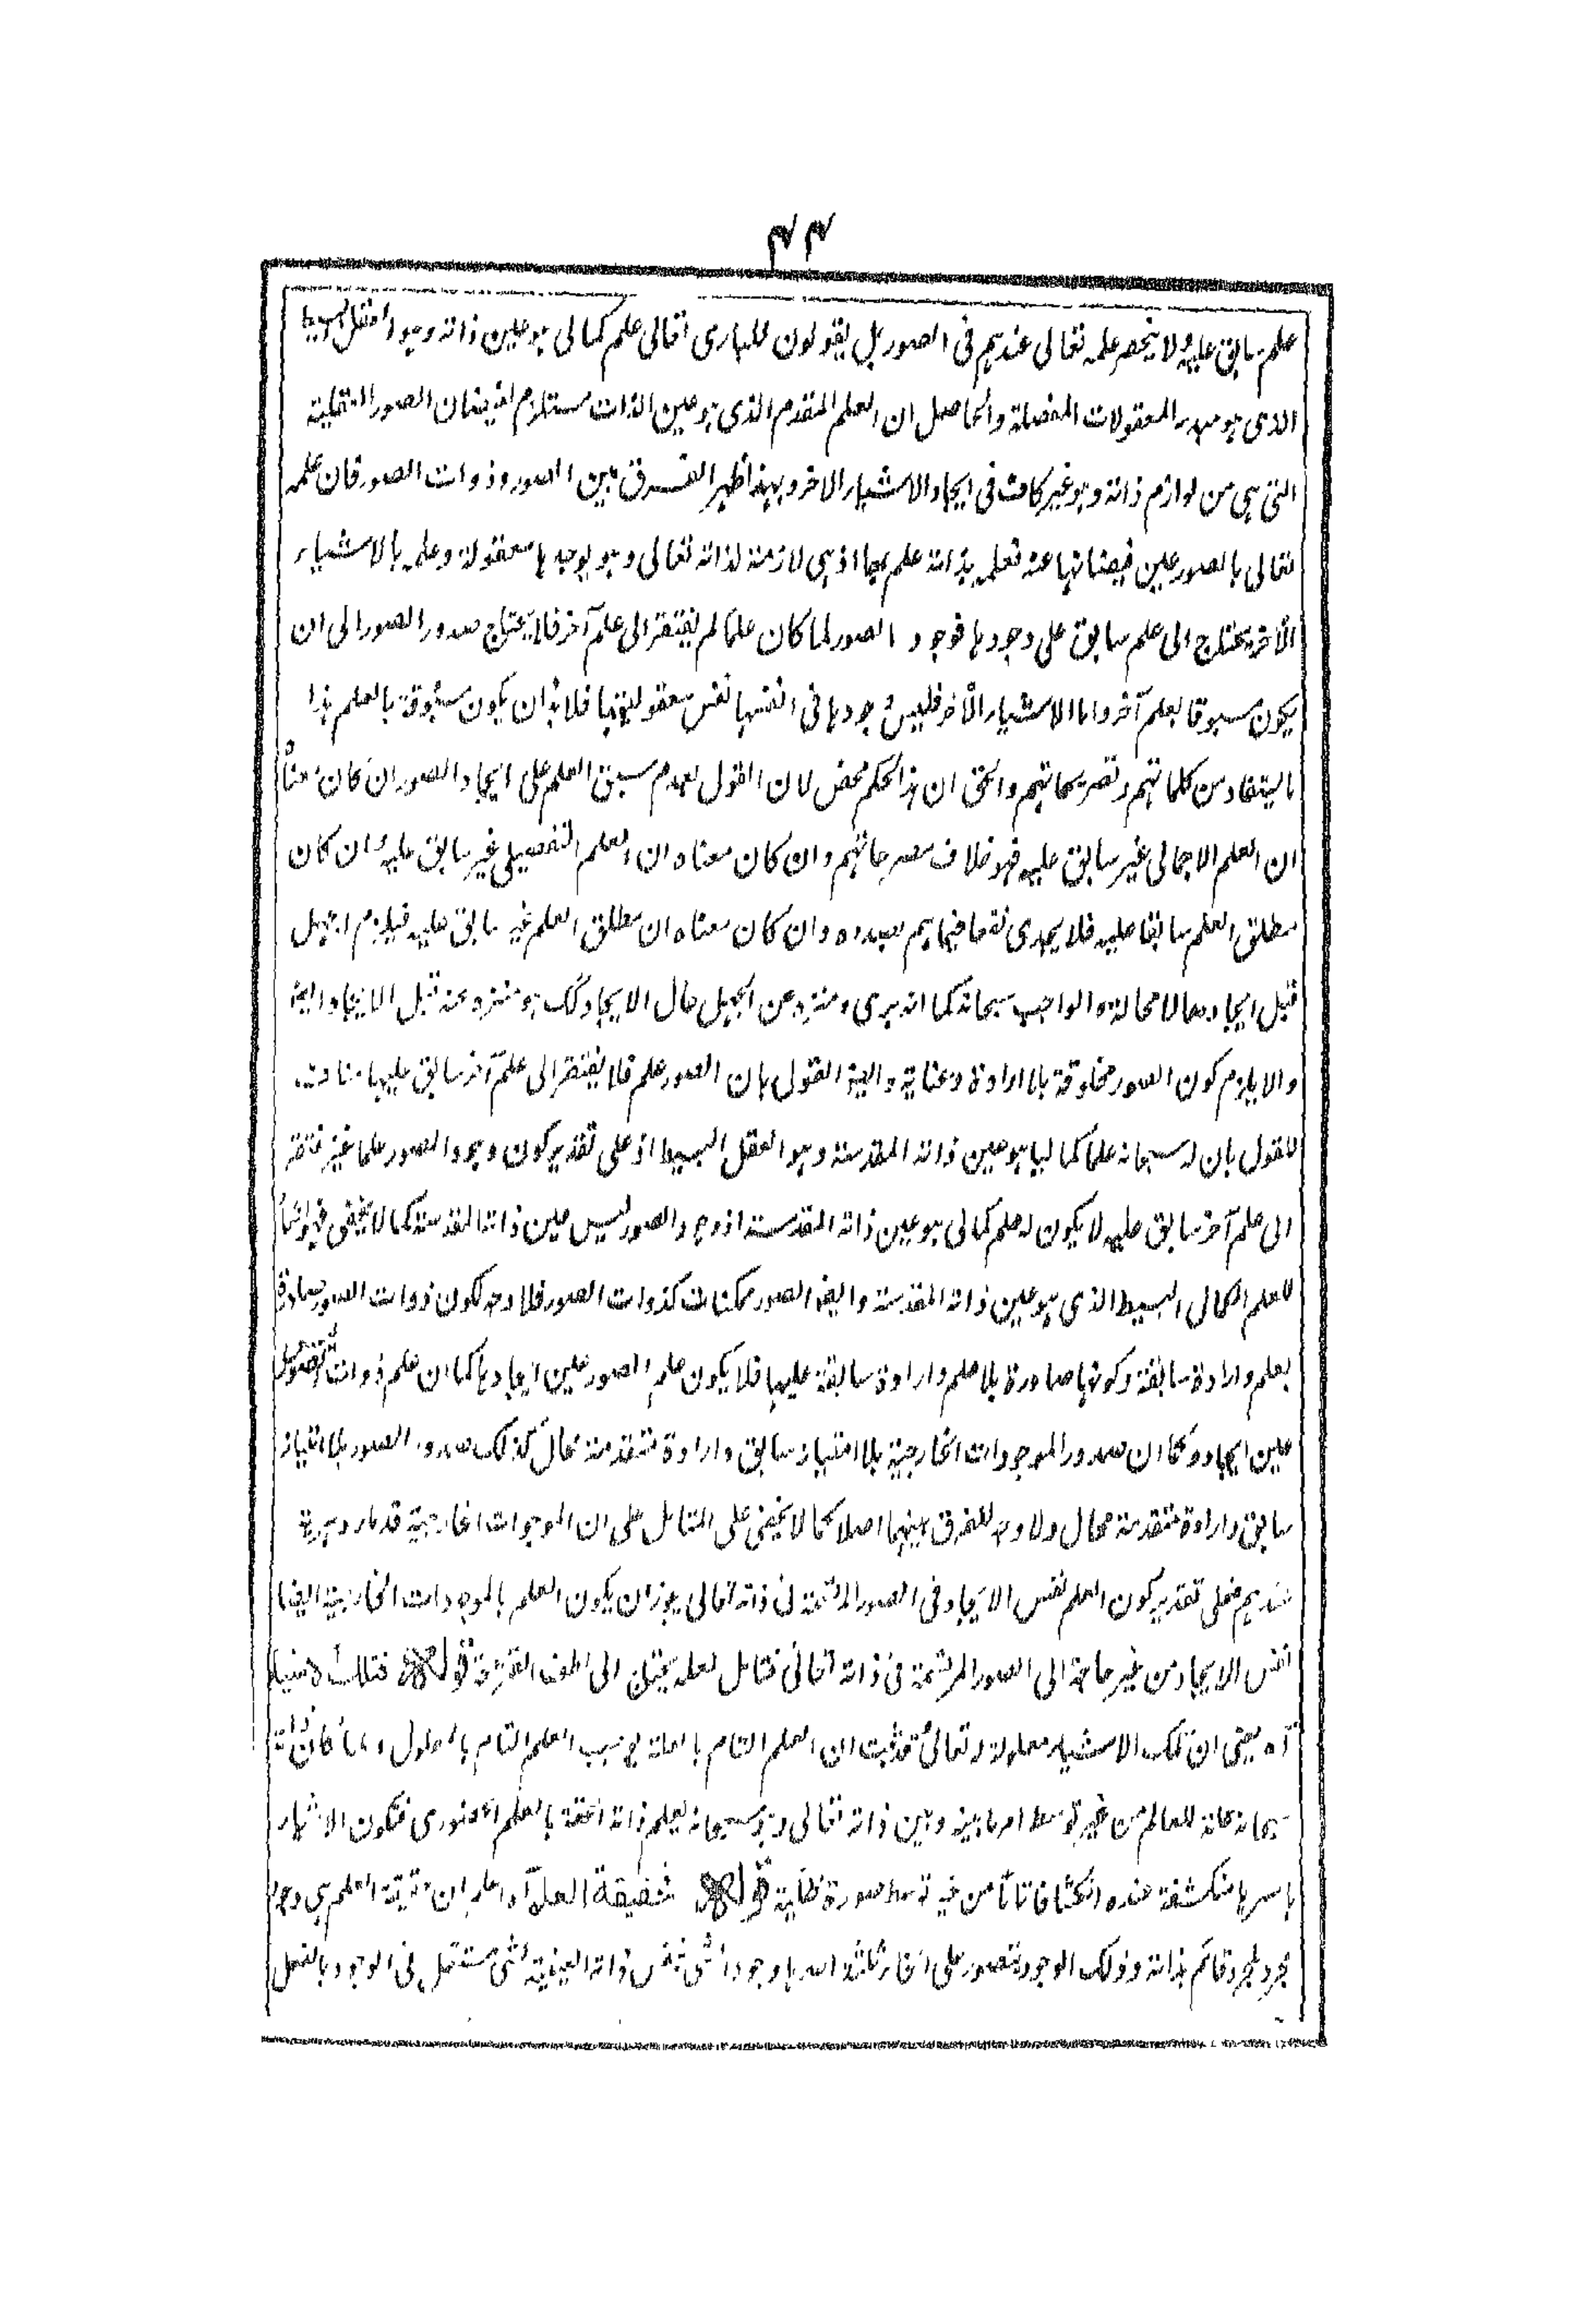 ۴۴
علم سابق عليه ولا ينحصر علمه تعالى عندهم فى الصور بل يقولون للبارى تعالى علم كمالى هو عين ذاته وهو العقل البسيط
الذى هو مبدء المعقولات المفصلة والحاصل ان العلم المتقدم الذى هو عين الذات مستلزم لفيضان الصور العقلية
التى هى من لوازم ذاته وهو غير كاف فى ايجاد الاشياء الاخر وبهذا ظهر الفرق بين الصور وذوات الصور فان علمه
تعالى بالصور عين فيضانها عنه فعلمه بذاته علم بها اذ هى لازمة لذاته تعالى وهو يوجدها معقولة وعلمه بالاشياء
الآخر يحتاج الى علم سابق على وجودها فوجود الصور لما كان علما لم يفتقر الى علم آخر فلا يحتاج صدور الصور الى ان
يكون مسبوقا بعلم آخر واما الاشياء الآخر فليس وجودها فى انفسها نفس معقوليتها فلابد ان يكون مسبوقة بالعلم هذا
ما يستفاد من كلماتهم وتصريحاتهم والحق ان هذا تحكم محض لان القول بعدم سبق العلم على ايجاد الصور ان كان معناه
ان العلم الاجمالى غير سابق عليه فهو خلاف مصرحاتهم وان كان معناه ان العلم التفصيلى غير سابق عليه وان كان
مطلق العلم سابقا عليه فلا يجدى نفعا فيما هم بصدده وان كان معناه ان مطلق العلم غير سابق عليه فيلزم الجهل
قبل ايجادها لا محالة والواجب سبحانه كما انه برى ومنزه عن الجهل حال الايجاد كك هو منزه عنه قبل الايجاد وايضا
والا يلزم كون الصور مخلوقة بلا ارادة وعناية وايضا القول بان الصور علم فلا يفتقر الى علم آخر سابق عليها مناف
للقول بان له سبحانه علما كماليا هو عين ذاته المقدسة وهو العقل البسيط اذ على تقدير كون وجود الصور علما غير مفتقر
الى علم آخر سابق عليه لا يكون له علم كمالى هو عين ذاته المقدسة اذ وجود الصور ليس عين ذاته المقدسة كما لا يخفى
للعلم الكمالى البسيط الذى هو عين ذاته المقدسة وايضا الصور ممكنات كذوات الصور فلا وجه لكون ذوات الصور صادرة
بعلم وارادة سابقة وكونها صادرة بلا علم وارادة سابقة عليها فلا يكون علم الصور عين ايجادها كما ان علم ذوات الصور ليس
عين ايجاده وكما ان صدور الموجودات الخارجية بلا امتياز سابق وارادة متقدمة محال كذلك صدور الصور بلا امتياز
سابق وارادة متقدمة محال ولا وجه للفرق بينهما اصلا كما لا يخفى على المتامل على ان الموجودات الخارجية قدمار دهرية
عندهم فعلى تقدير كون العلم نفس الايجاد فى الصور المرتسمة فى ذاته تعالى يجوز ان يكون العلم بالموجودات الخارجية ايضا
نفس الايجاد من غير حاجة الى الصور المرتسمة فى ذاته تعالى فتامل لعله يحتاج الى لطف القريحة قوله فتلك الاشياء
آه يعنى ان تلك الاشياء معلولة له تعالى وقد ثبت ان العلم التام بالعلة يوجب العلم التام بالمعلول ولما كان ذاته
سبحانه علة للعالم من غير توسط امر ما بينه وبين ذاته تعالى وهو سبحانه يعلم ذاته الحقة بالعلم الحضورى فتكون الاشياء
باسرها منكشفة عنده انكشافا تاما من غير توسط صورة ظلية قوله فحقيقة العلم آه اعلم ان حقيقة العلم هى وجود
مجرد لمجرد قائم بذاته وذلك الوجود يتصور على انحاء ثلثة احدها وجود الشئ بنفس ذاته العينية لشئ مستقل فى الوجود بالفعل